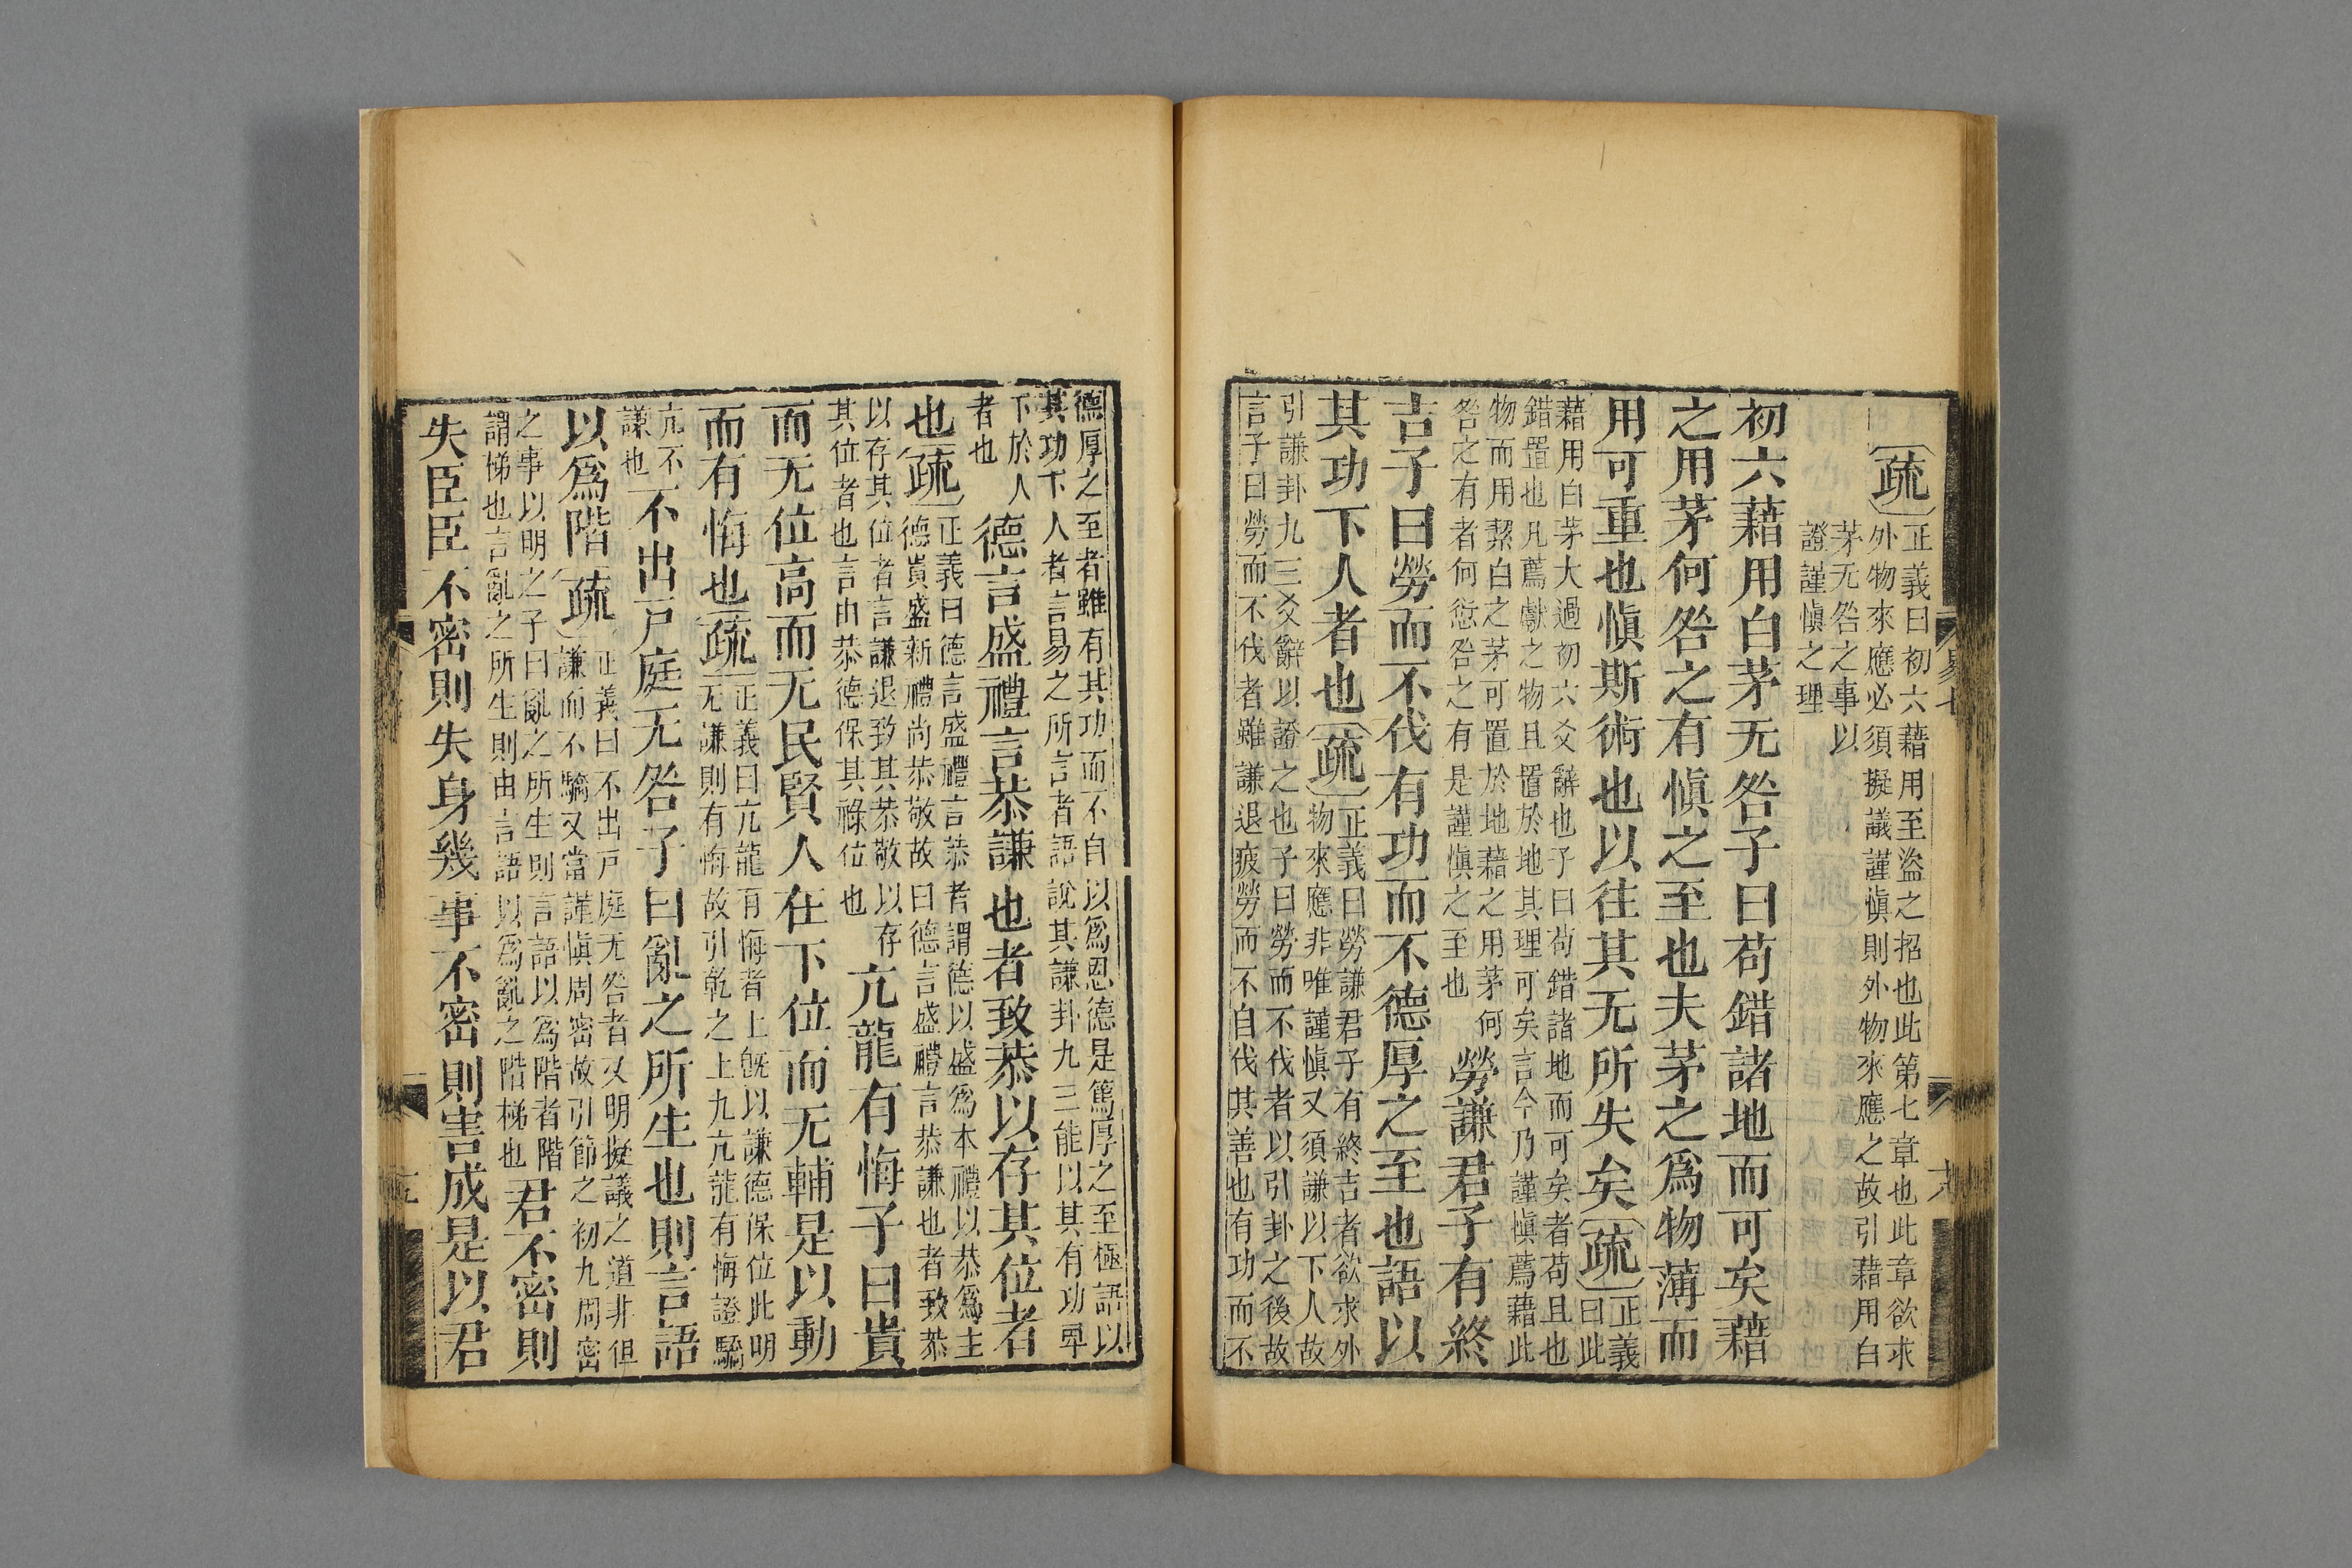 疏正義曰初六藉用至盜之招也此第七章也此章欲求
外物來應必須擬議謹愼則外物來應之故引藉用白
茅无咎之事以
證謹愼之理
初六藉用白茅无咎子曰苟錯諸地而可矣藉
之用茅何咎之有愼之至也夫茅之爲物薄而
用可重也愼斯術也以往其无所失矣疏正義
曰此
藉用白茅大過初六爻辭也子曰苟錯諸地而可矣者苟且也
錯置也凡薦獻之物且置於地其理可矣言今乃謹愼薦藉此
物而用絜白之茅可置於地藉之用茅何
咎之有者何愆咎之有是謹愼之至也
勞謙君子有終
吉子曰勞而不伐有功而不德厚之至也語以
其功下人者也疏正義曰勞謙君子有終吉者欲求外
物來應非唯謹愼又須謙以下人故
引謙卦九三爻辭以證之也子曰勞而不伐者以引卦之後故
言子曰勞而不伐者雖謙退疲勞而不自伐其善也有功而不
德厚之至者雖有其功而不自以爲恩德是篤厚之至極語以
其功下人者言易之所言者語說其謙卦九三能以其有功卑
下於人
者也
德言盛禮言恭謙也者致恭以存其位者
也疏正義曰德言盛禮言恭者謂德以盛爲本禮以恭爲主
德貴盛新禮尚恭敬故曰德言盛禮言恭謙也者致恭
以存其位者言謙退致其恭敬以存
其位者也言由恭德保其祿位也
亢龍有悔子曰貴
而无位高而无民賢人在下位而无輔是以動
而有悔也疏正義曰亢龍有悔者上旣以謙德保位此明
无謙則有悔故引乾之上九亢龍有悔證驕
亢不
謙也
不出戸庭无咎子曰亂之所生也則言語
以爲階疏正義曰不出戸庭无咎者又明擬議之道非但
謙而不驕又當謹愼周密故引節之初九周密
之事以明之子曰亂之所生則言語以爲階者階
謂梯也言亂之所生則由言語以爲亂之階梯也
君不密則
失臣臣不密則失身幾事不密則害成是以君
易七